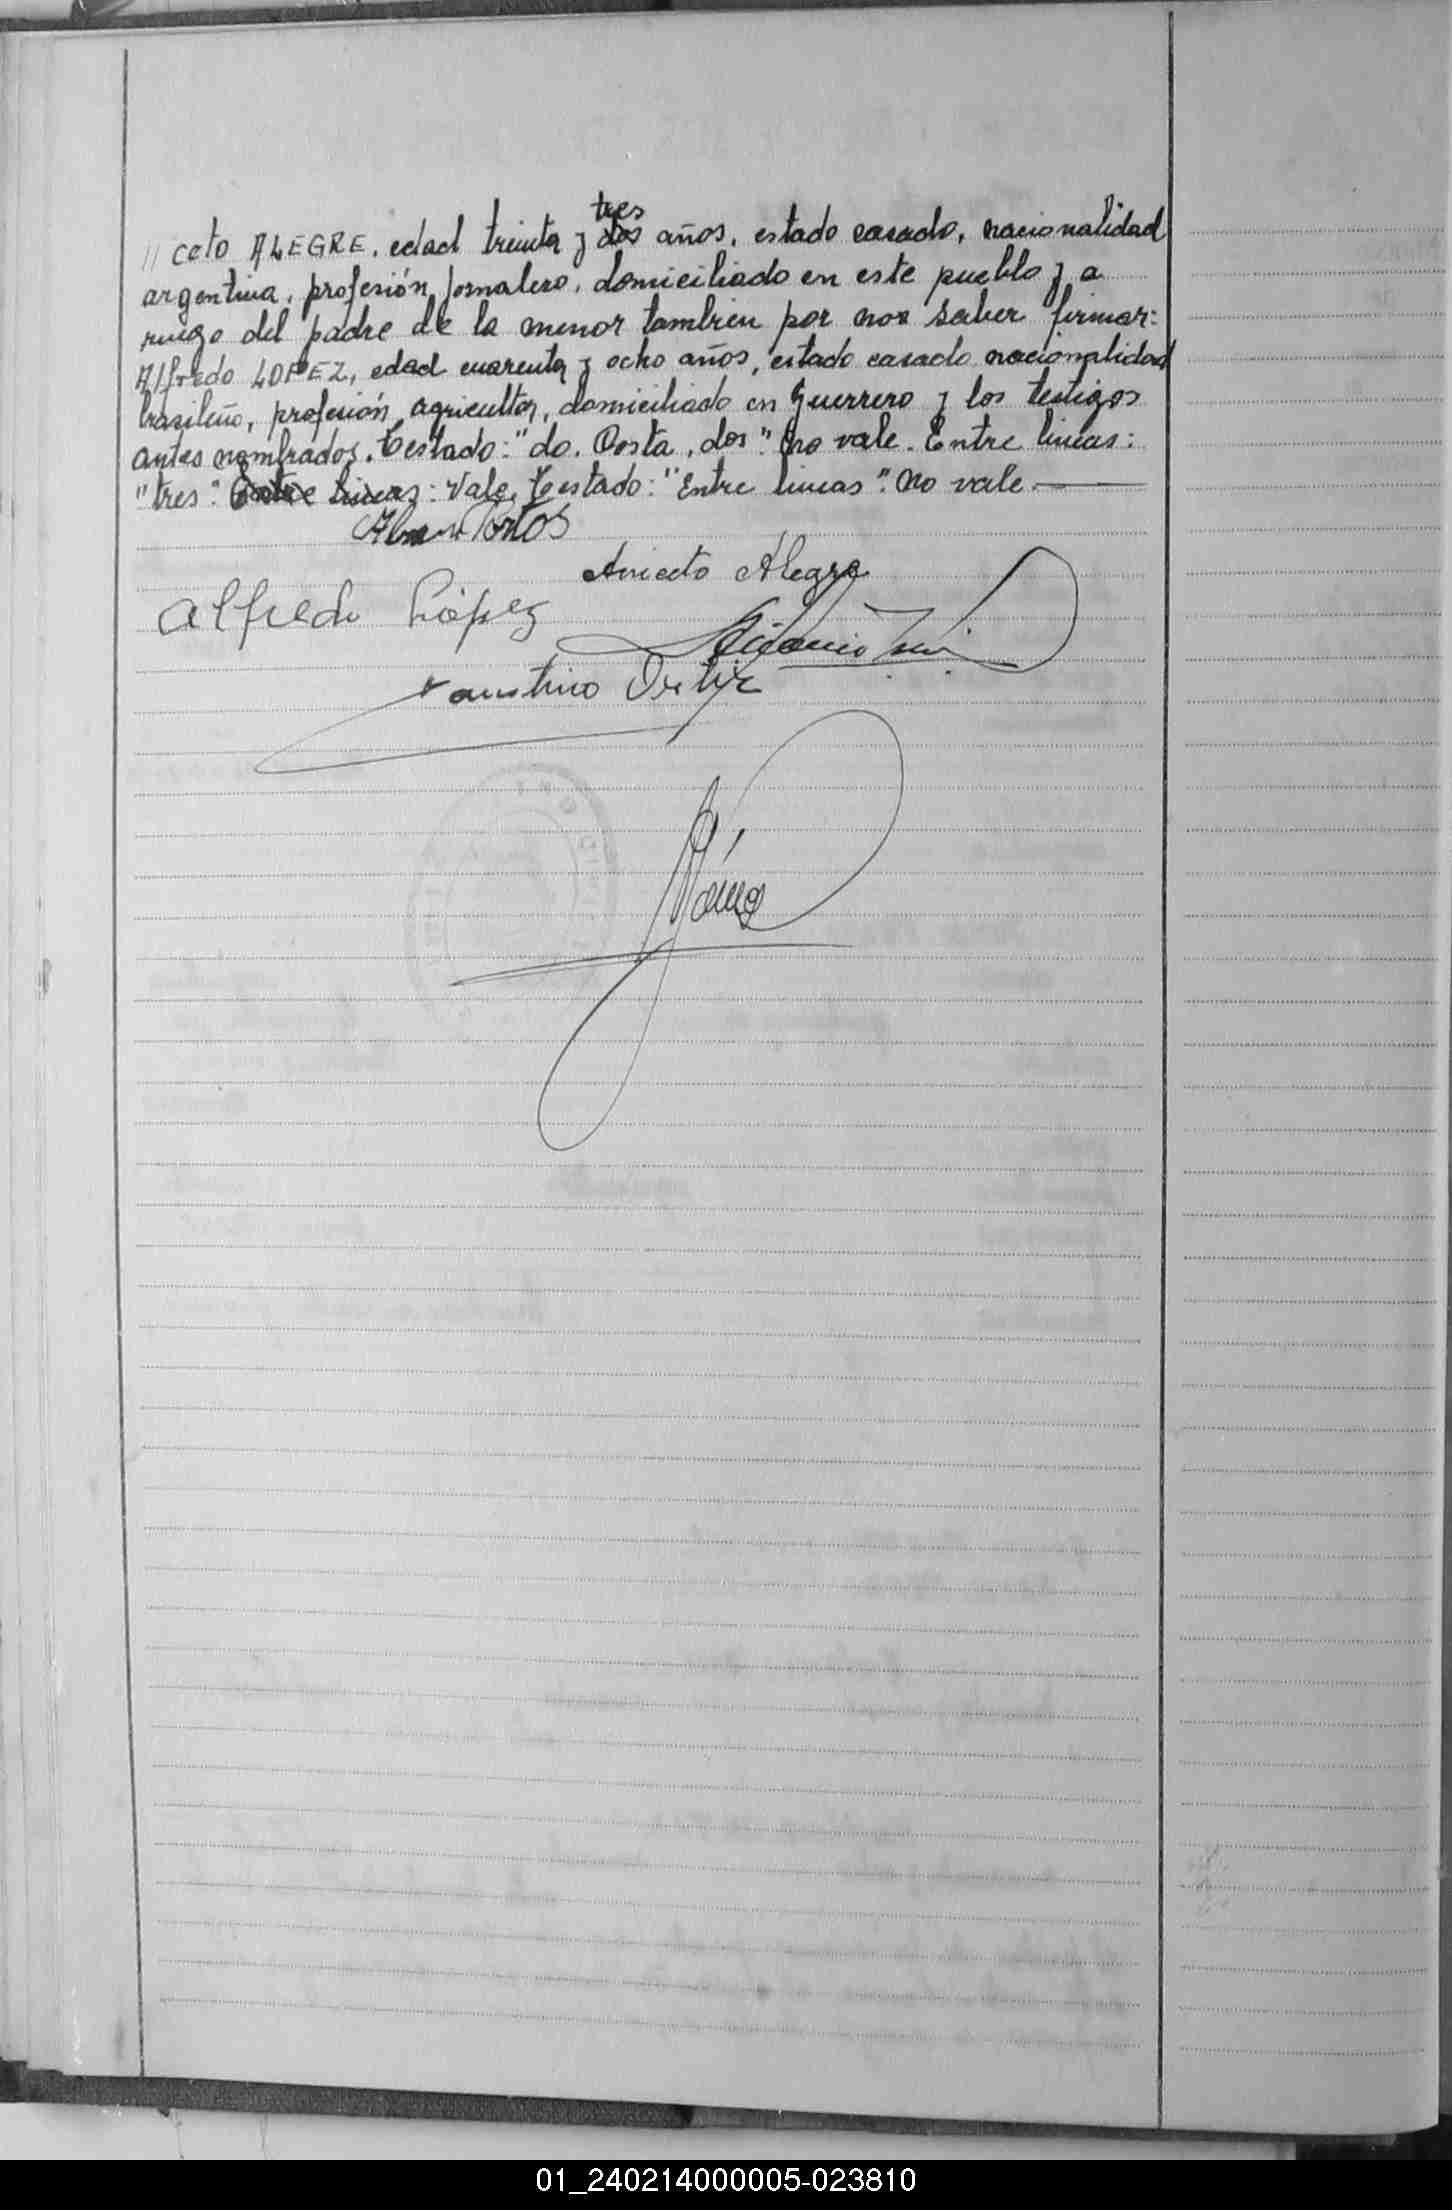 // ceto ALEGRE, edad treinta y dos años, estado casado, nacionalidad
tres
argentina, profesión jornalero, domiciliado en este pueblo y a
ruego del padre de la menor tambien por no saber firmar:
Alfredo LOPEZ, edad cuarenta y ocho años, estado casado nacionalidad
brasileño, profesión agricultor, domiciliado en Guerrero y los testigos
antes nombrados. Testado: "do. Costa, dos". No vale. Entre lineas:
"tres". Entre lineas: Vale. Testado: "Entre lineas". No vale
Aniceto Alegre
Alfredo López
Faustino Ortiz
01_240214000005-023810